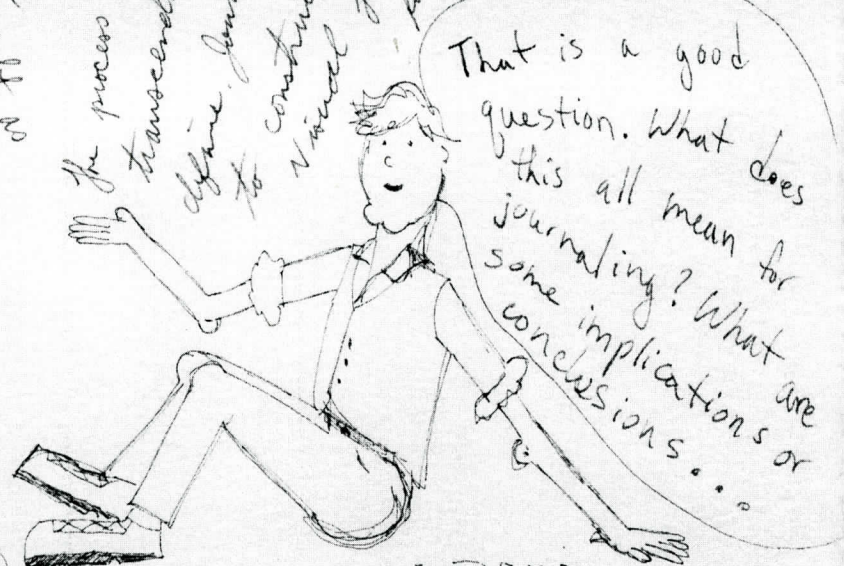 The process
transcend
define. Jour
to constru
Visual
That is a good
question. What does
this all mean for
journaling? What are
some implications or
conclusions...